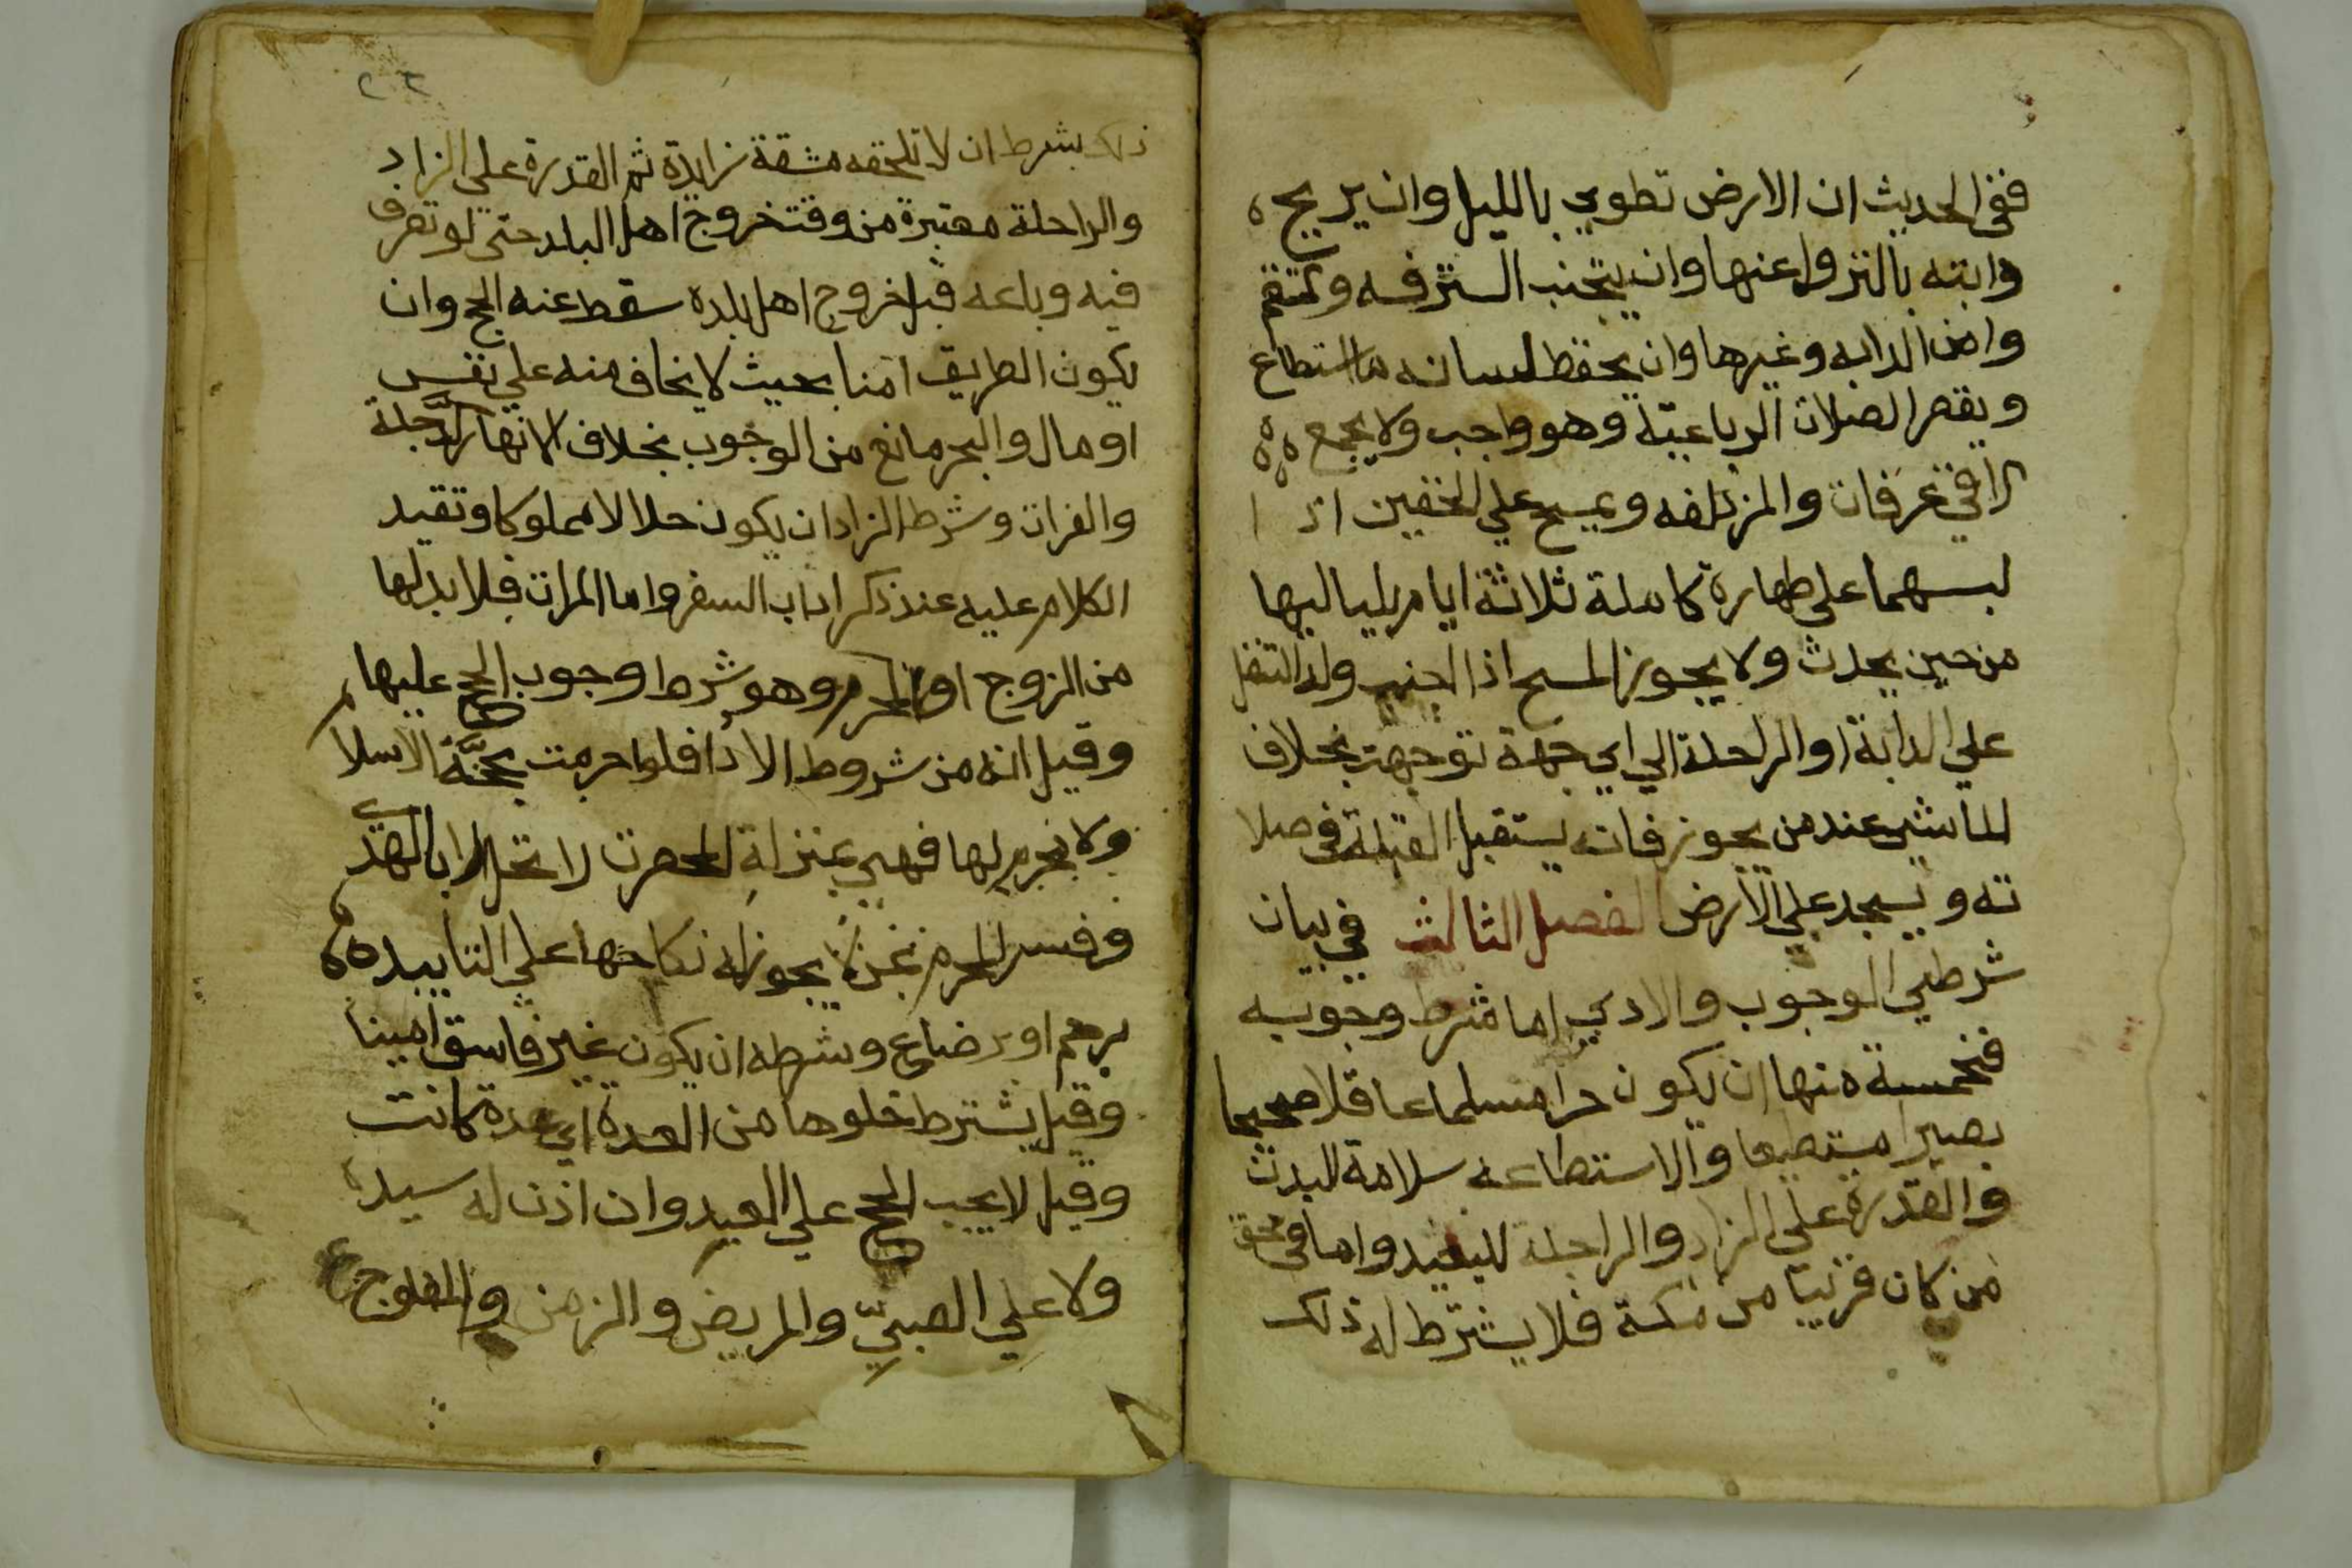 ففي الحديث ان الارض تطوي بالليل وان يريح
دابته بالنزول عنها وان يتجنب الترفه
وامن الدابه وغيرها وان يحفظ لسانه ما استطاع
ويقصر الصلاة الرباعية وهو واجب ولا يجمع
الا في عرفات والمزدلفه ويمسح علي الخفين اذ ا
لبسهما علي طهارة كاملة ثلاثة ايام بلياليها
من حين يحدث ولا يجوز المسح اذا اجنب وله التنفل
علي الدابة او الراحلة الي اي جهة توجهت بخلاف
الماشي عند من يجوز فانه يستقبل القبلة في صلا
ته ويسجد علي الارض الفصل الثالث في بيان
شرطي الوجوب والادي اما شرط وجوبه
فخمسة منها ان يكون حرا مسلما عاقلا صحيحا
بصيرا مستطيعا والاستطاعه سلامة البدن
والقدرة علي الزاد والراحلة للبعيد واما في حق
من كان قريبا من مكة فلا يشترط له ذلك
٢٢
ذلك بشرط ان لا تلحقه مشقة زايدة ثم القدرة علي الزاد
والراحلة معتبرة من وقت خروج اهل البلد حتي لو تصرف
فيه وباعه قبل خروج اهل بلده سقط عنه الحج وان
يكون الطريق امنا بحيث لا يخاف منه علي نفس
او مال والبحر مانع من الوجوب بخلاف الانهار كالدجلة
والفرات وشرط الزاد ان يكون حلالا مملوكا وتقيد
الكلام عليه عند ذكر اداب السفر واما المراة فلا بد لها
من الزوج او المحرم وهو شرط وجوب الحج عليها
وقيل انه من شروط الادا فلو احرمت بحجة الاسلام
ولا محرم لها فهي بمنزلة المحصرة لا تحل الا بالهدي
وفسر المحرم بمن لا يجوز له نكاحها علي التابيد
برحم او رضاع وشرطه ان يكون غير فاسق امينا
وقيل يشترط خلوها من العدة اي عدة كانت
وقيل لا يجب الحج علي العبد وان اذن له سيده
ولا علي الصبي والمريض والزمن والمفلوج